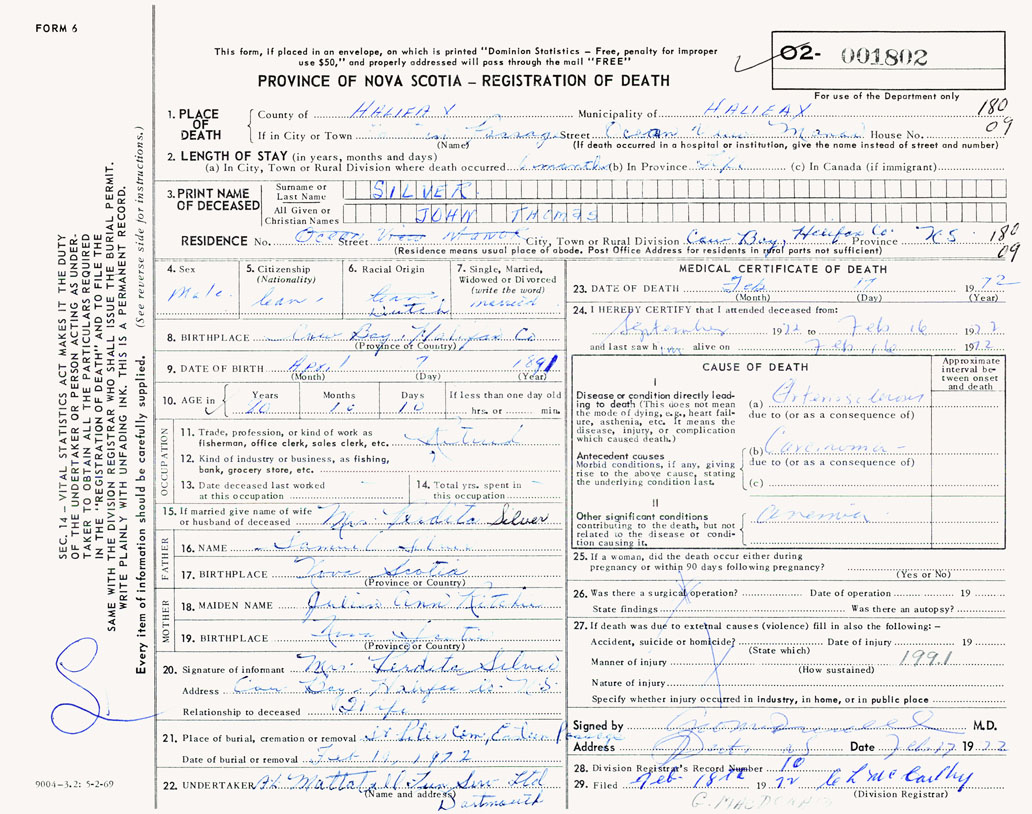 FORM 6
This form, if placed in an envelope, on which is printed "Dominion Statistics – Free, penalty for improper
use $50," and properly addressed will pass through the mail "FREE"
PROVINCE OF NOVA SCOTIA – REGISTRATION OF DEATH
02- 001802
For use of the Department only
180
09
1. PLACE OF DEATH
County of HALIFAX Municipality of HALIFAX
If in City or Town Street Ocean View Manor House No.
(Name) (If death occurred in a hospital or institution, give the name instead of street and number)
2. LENGTH OF STAY (in years, months and days)
(a) In City, Town or Rural Division where death occurred months (b) In Province Life (c) In Canada (if immigrant)
3. PRINT NAME OF DECEASED
Surname or Last Name SILVER
All Given or Christian Names JOHN THOMAS
RESIDENCE No. Ocean View Manor Street City, Town or Rural Division Cow Bay, Halifax Co. Province N.S.
(Residence means usual place of abode. Post Office Address for residents in rural parts not sufficient)
180
09
4. Sex
Male
5. Citizenship
(Nationality)
Can.
6. Racial Origin
Dutch
7. Single, Married,
Widowed or Divorced
(write the word)
married
8. BIRTHPLACE Cow Bay, Halifax Co
(Province or Country)
9. DATE OF BIRTH April 7 1891
(Month) (Day) (Year)
10. AGE in
Years Months Days If less than one day old
10 10 hrs. or min.
OCCUPATION
11. Trade, profession, or kind of work as
fisherman, office clerk, sales clerk, etc. Retired
12. Kind of industry or business, as fishing,
bank, grocery store, etc.
13. Date deceased last worked
at this occupation
14. Total yrs. spent in
this occupation
15. If married give name of wife
or husband of deceased Mrs. Verdita Silver
FATHER
16. NAME Samuel Silver
17. BIRTHPLACE Nova Scotia
(Province or Country)
MOTHER
18. MAIDEN NAME Julia Ann
19. BIRTHPLACE Nova Scotia
(Province or Country)
20. Signature of informant Mrs. Verdita Silver
Address Cow Bay, Halifax Co. N.S
Relationship to deceased Wife
21. Place of burial, cremation or removal St Peters Cem, Eastern Passage
Date of burial or removal Feb 19, 1972
22. UNDERTAKER Mattatall Fun Serv Ltd
(Name and address)
Dartmouth
MEDICAL CERTIFICATE OF DEATH
23. DATE OF DEATH Feb 17 1972
(Month) (Day) (Year)
24. I HEREBY CERTIFY that I attended deceased from:
September 19 to Feb 16 1972
and last saw him alive on Feb 16 1972
CAUSE OF DEATH
Approximate
interval be-
tween onset
and death
I
Disease or condition directly lead-
ing to death (This does not mean
the mode of dying, e.g., heart fail-
ure, asthenia, etc. It means the
disease, injury, or complication
which caused death.)
(a) Arteriosclerosis
due to (or as a consequence of)
Antecedent causes
Morbid conditions, if any, giving
rise to the above cause, stating
the underlying condition last.
(b) Carcinoma
due to (or as a consequence of)
(c)
II
Other significant conditions
contributing to the death, but not
related to the disease or condi-
tion causing it.
anemia
25. If a woman, did the death occur either during
pregnancy or within 90 days following pregnancy?
(Yes or No)
26. Was there a surgical operation? Date of operation 19
State findings Was there an autopsy?
27. If death was due to external causes (violence) fill in also the following: –
Accident, suicide or homicide? Date of injury 19
(State which)
Manner of injury 1991
(How sustained)
Nature of injury
Specify whether injury occurred in industry, in home, or in public place
Signed by M.D.
Address Dart. NS Date Feb. 17 1972
28. Division Registrar's Record Number 10
29. Filed Feb 18th 1972 McCarthy
(Division Registrar)
G. MACDONALD
SEC. 14 – VITAL STATISTICS ACT MAKES IT THE DUTY
OF THE UNDERTAKER OR PERSON ACTING AS UNDER-
TAKER TO OBTAIN ALL THE PARTICULARS REQUIRED
IN THE "REGISTRATION OF DEATH" AND TO FILE THE
SAME WITH THE DIVISION REGISTRAR WHO SHALL ISSUE THE BURIAL PERMIT.
WRITE PLAINLY WITH UNFADING INK. THIS IS A PERMANENT RECORD.
Every item of information should be carefully supplied. (See reverse side for instructions.)
9004-3.2: 5-2-69